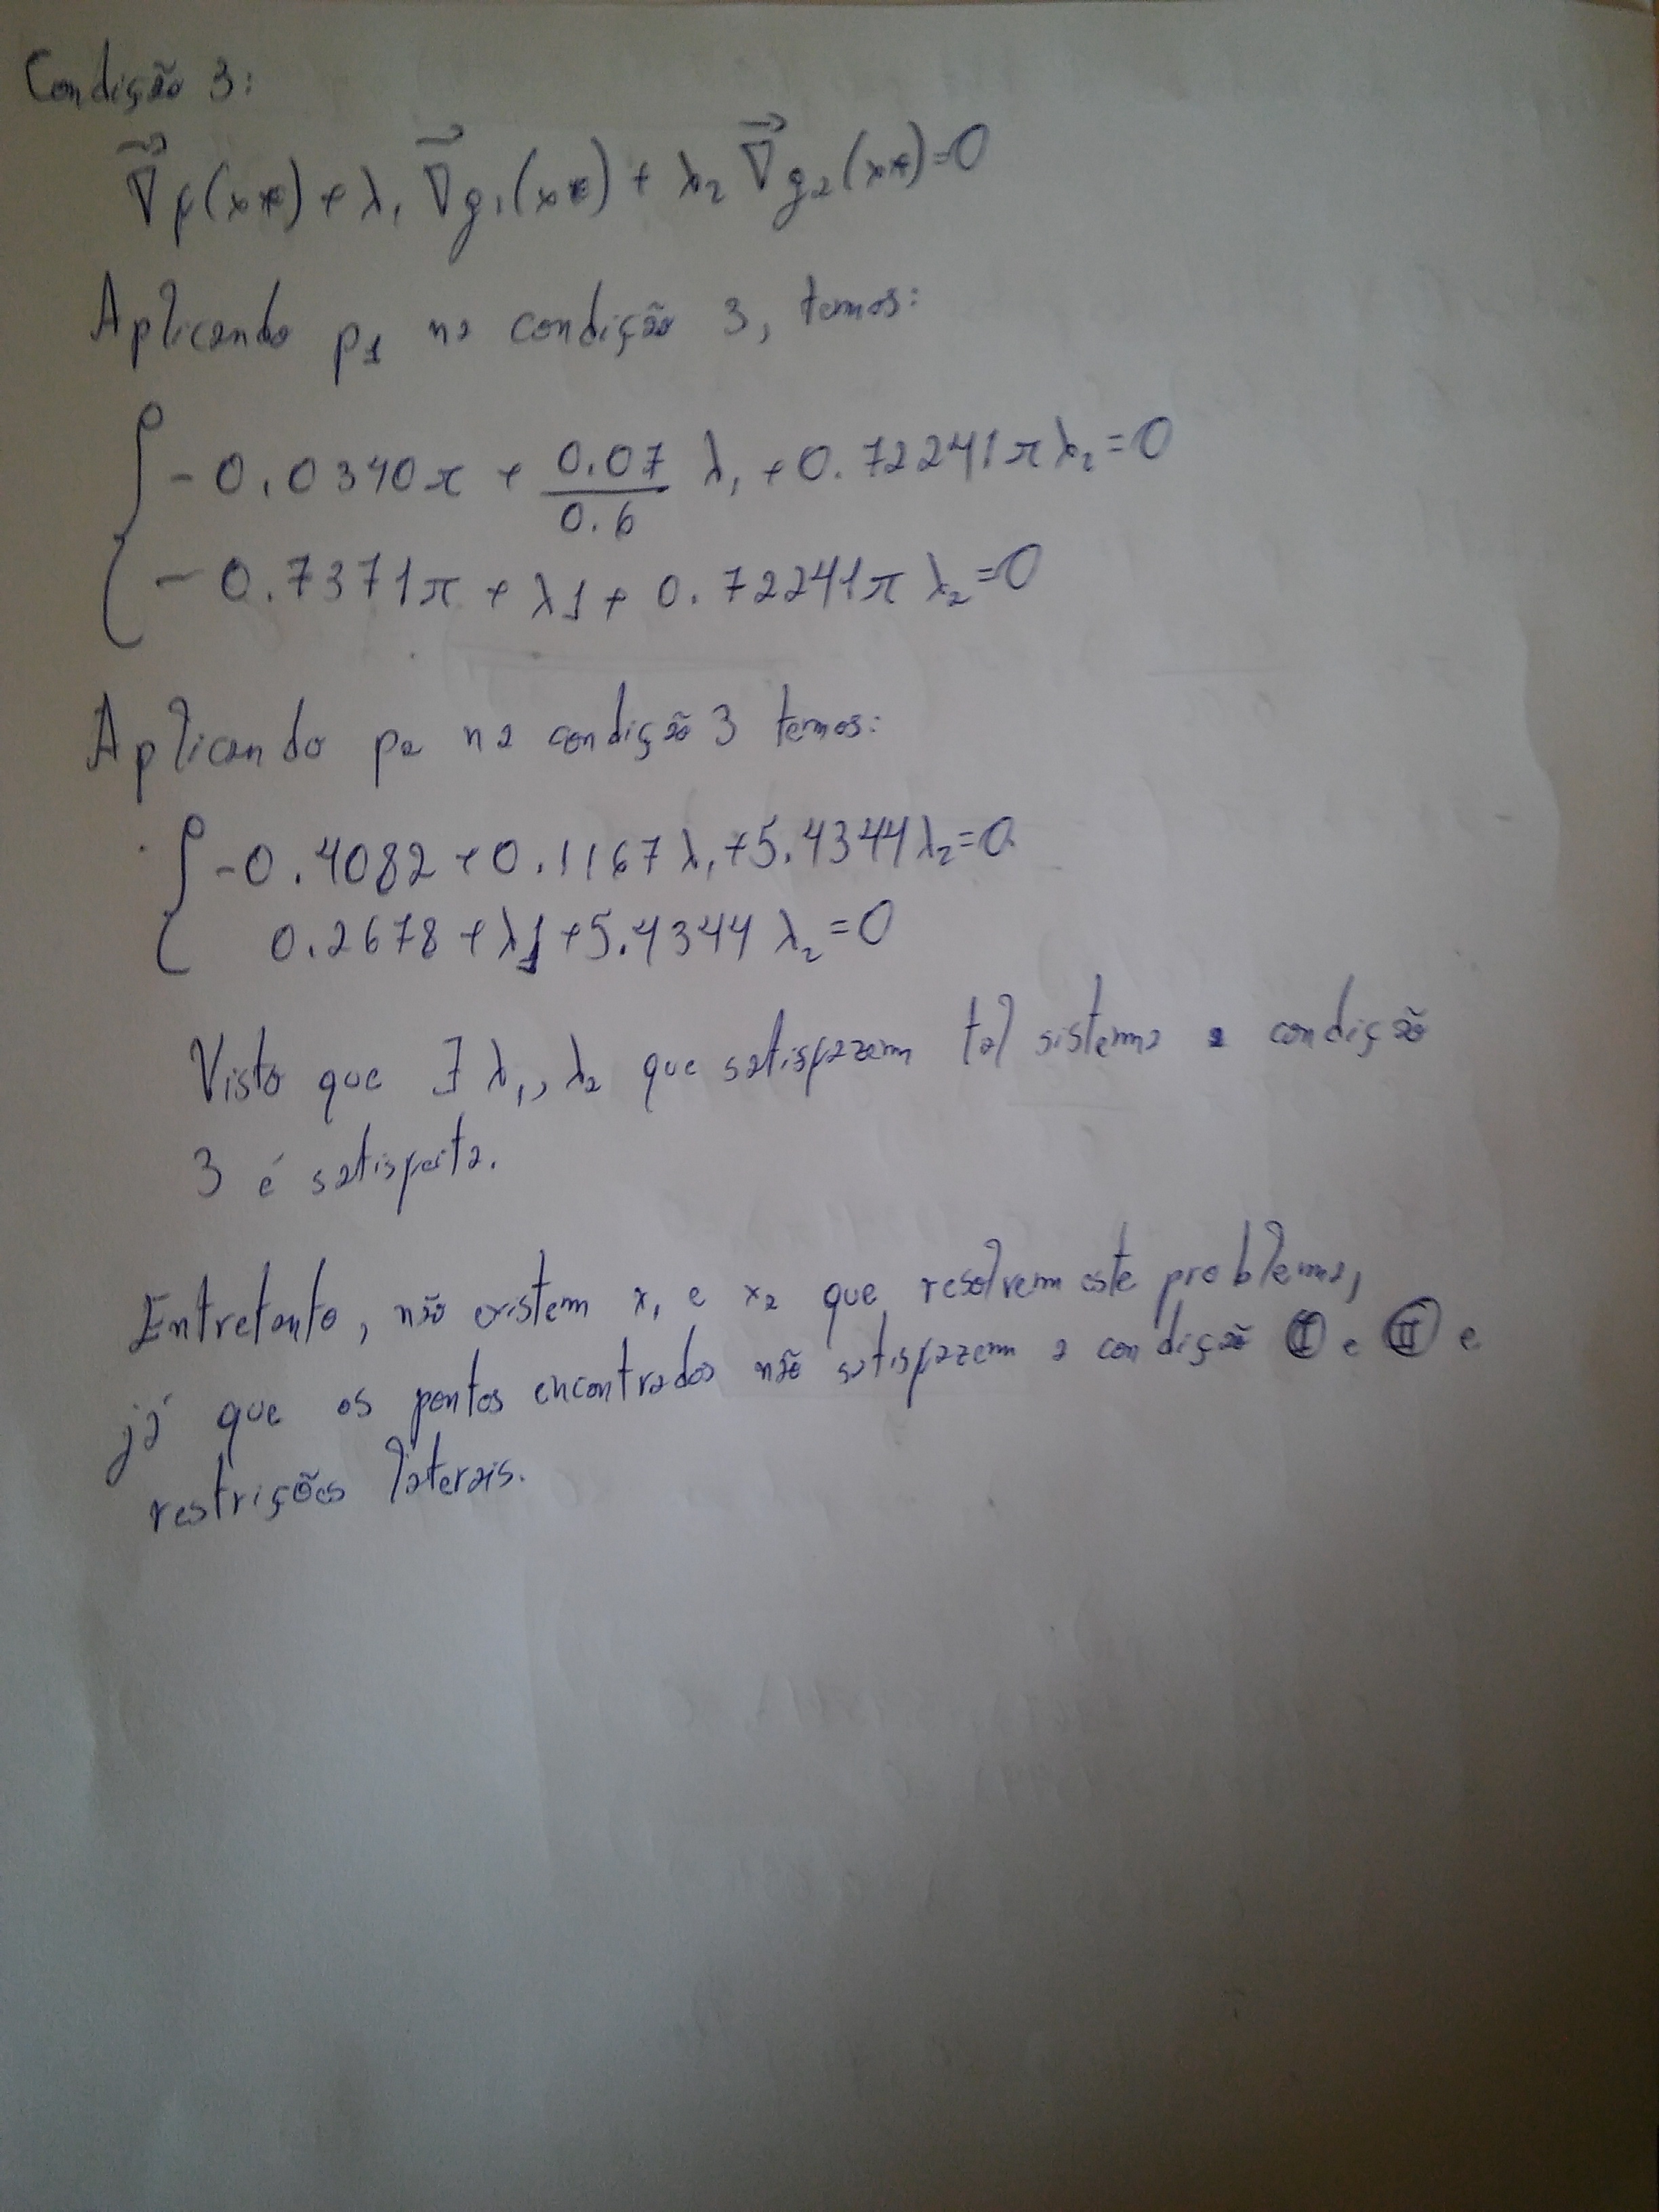 Condição 3:
∇⃗f(x*) + λ₁ ∇⃗g₁(x*) + λ₂ ∇⃗g₂(x*)=0
Aplicando p1 na condição 3, temos:
-0.0340π + 0.07/0.6 λ₁ + 0.72241πλ₂=0
-0.7371π + λ1 + 0.72241π λ₂=0
Aplicando p2 na condição 3 temos:
-0.4082 + 0.1167 λ₁ + 5.4344 λ₂=0
0.2678 + λ1 + 5.4344 λ₂=0
Visto que ∃ λ₁, λ₂ que satisfazem tal sistema a condição
3 é satisfeita.
Entretanto, não existem x₁ e x₂ que resolvem este problema,
já que os pontos encontrados não satisfazem a condição Ⓘ e Ⓘⓘ e
restrições laterais.